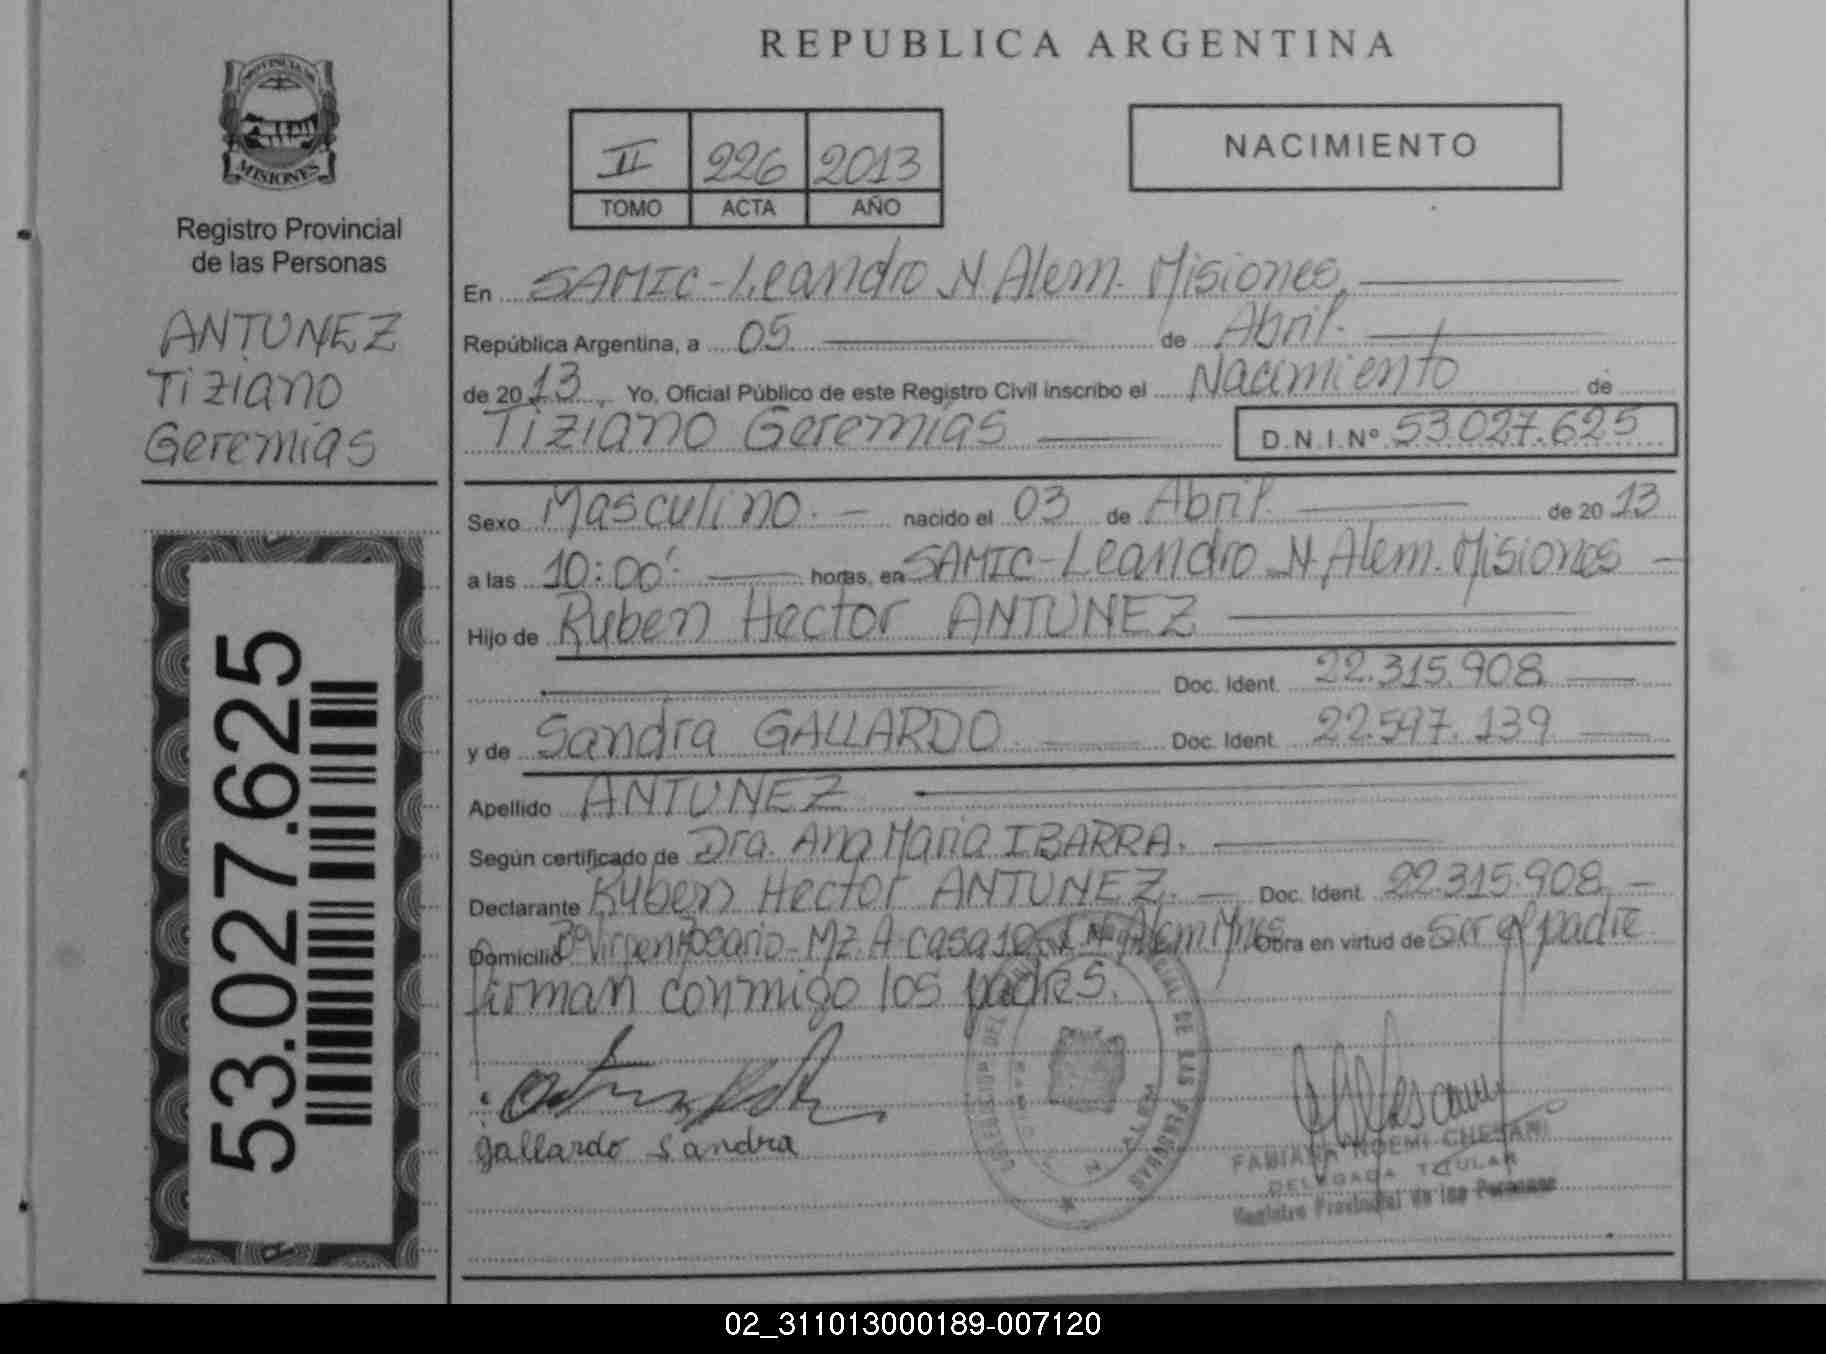 REPUBLICA ARGENTINA
PROVINCIA DE
MISIONES
Registro Provincial
de las Personas
ANTUNEZ
Tiziano
Geremias
53.027.625
II 226 2013
TOMO ACTA AÑO
NACIMIENTO
En SAMIC-Leandro N Alem. Misiones,
República Argentina, a 05 de Abril.
de 2013, Yo, Oficial Público de este Registro Civil inscribo el Nacimiento de
Tiziano Geremias D.N.I.Nº 53.027.625
Sexo Masculino. nacido el 03 de Abril. de 2013
a las 10:00'. horas, en SAMIC-Leandro N. Alem. Misiones
Hijo de Ruben Hector ANTUNEZ
Doc. Ident. 22.315.908
y de Sandra GALLARDO Doc. Ident. 22.597.139
Apellido ANTUNEZ
Según certificado de Dra. Ana Maria IBARRA.
Declarante Ruben Hector ANTUNEZ. Doc. Ident. 22.315.908
Domicilio Bº Virgen Rosario-Mz.A-casa 10 L N Alem Mnes Obra en virtud de ser el padre
firman conmigo los padres.
gallardo Sandra
DE LAS PERSONAS
N. ALEM
FABIANA NOEMI CHESANI
DELEGADA TITULAR
Registro Provincial de las Personas
02_311013000189-007120